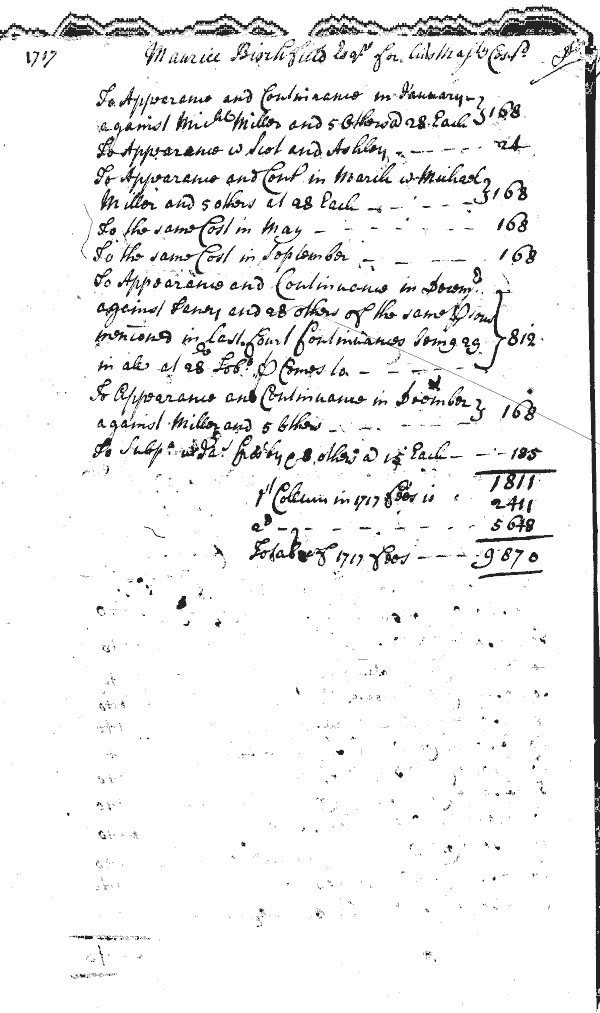 1717 Maurice Birchfield Esqr for his Majtys Cost
To Appearance and Continuance in January
against Michll Miller and 5 Others @ 28 Each } 168
To Appearance w Scot and Ashley - - - 24
To Appearance and Cont in March w Michael
Miller and 5 others at 28 Each - - - } 168
To the same Cost in May - - - - 168
To the same Cost in September - - - 168
To Appearance and Continuance in Decemr
against and 28 others of the same psons
mentioned in last Court Continuances being 29 } 812
in all at 28 Tobo p Comes to - - - -
To Appearance and Continuance in December } 168
against Miller and 5 Others - - -
To Subpa by 8 others a 15 Each - - 135
1811
1st Collum in 1717 fees is 2411
2d - - - - - - - 5648
Total of 1717 fees - - - - 9870